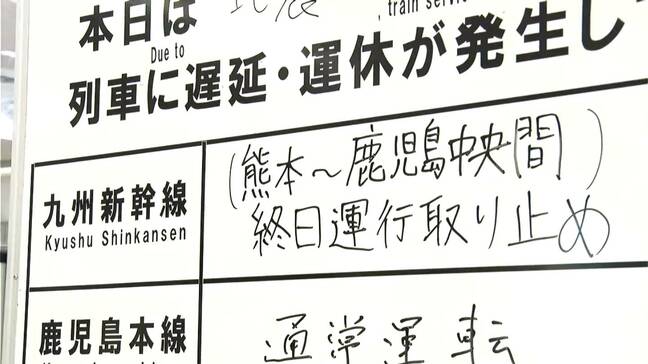 本日は
train servic
Due to
列車に遅延・運休が発生し
九州新幹線
Kyushu Shinkansen
(熊本～鹿児島中央間)
終日運行取り止め
鹿児島本線
通常運転